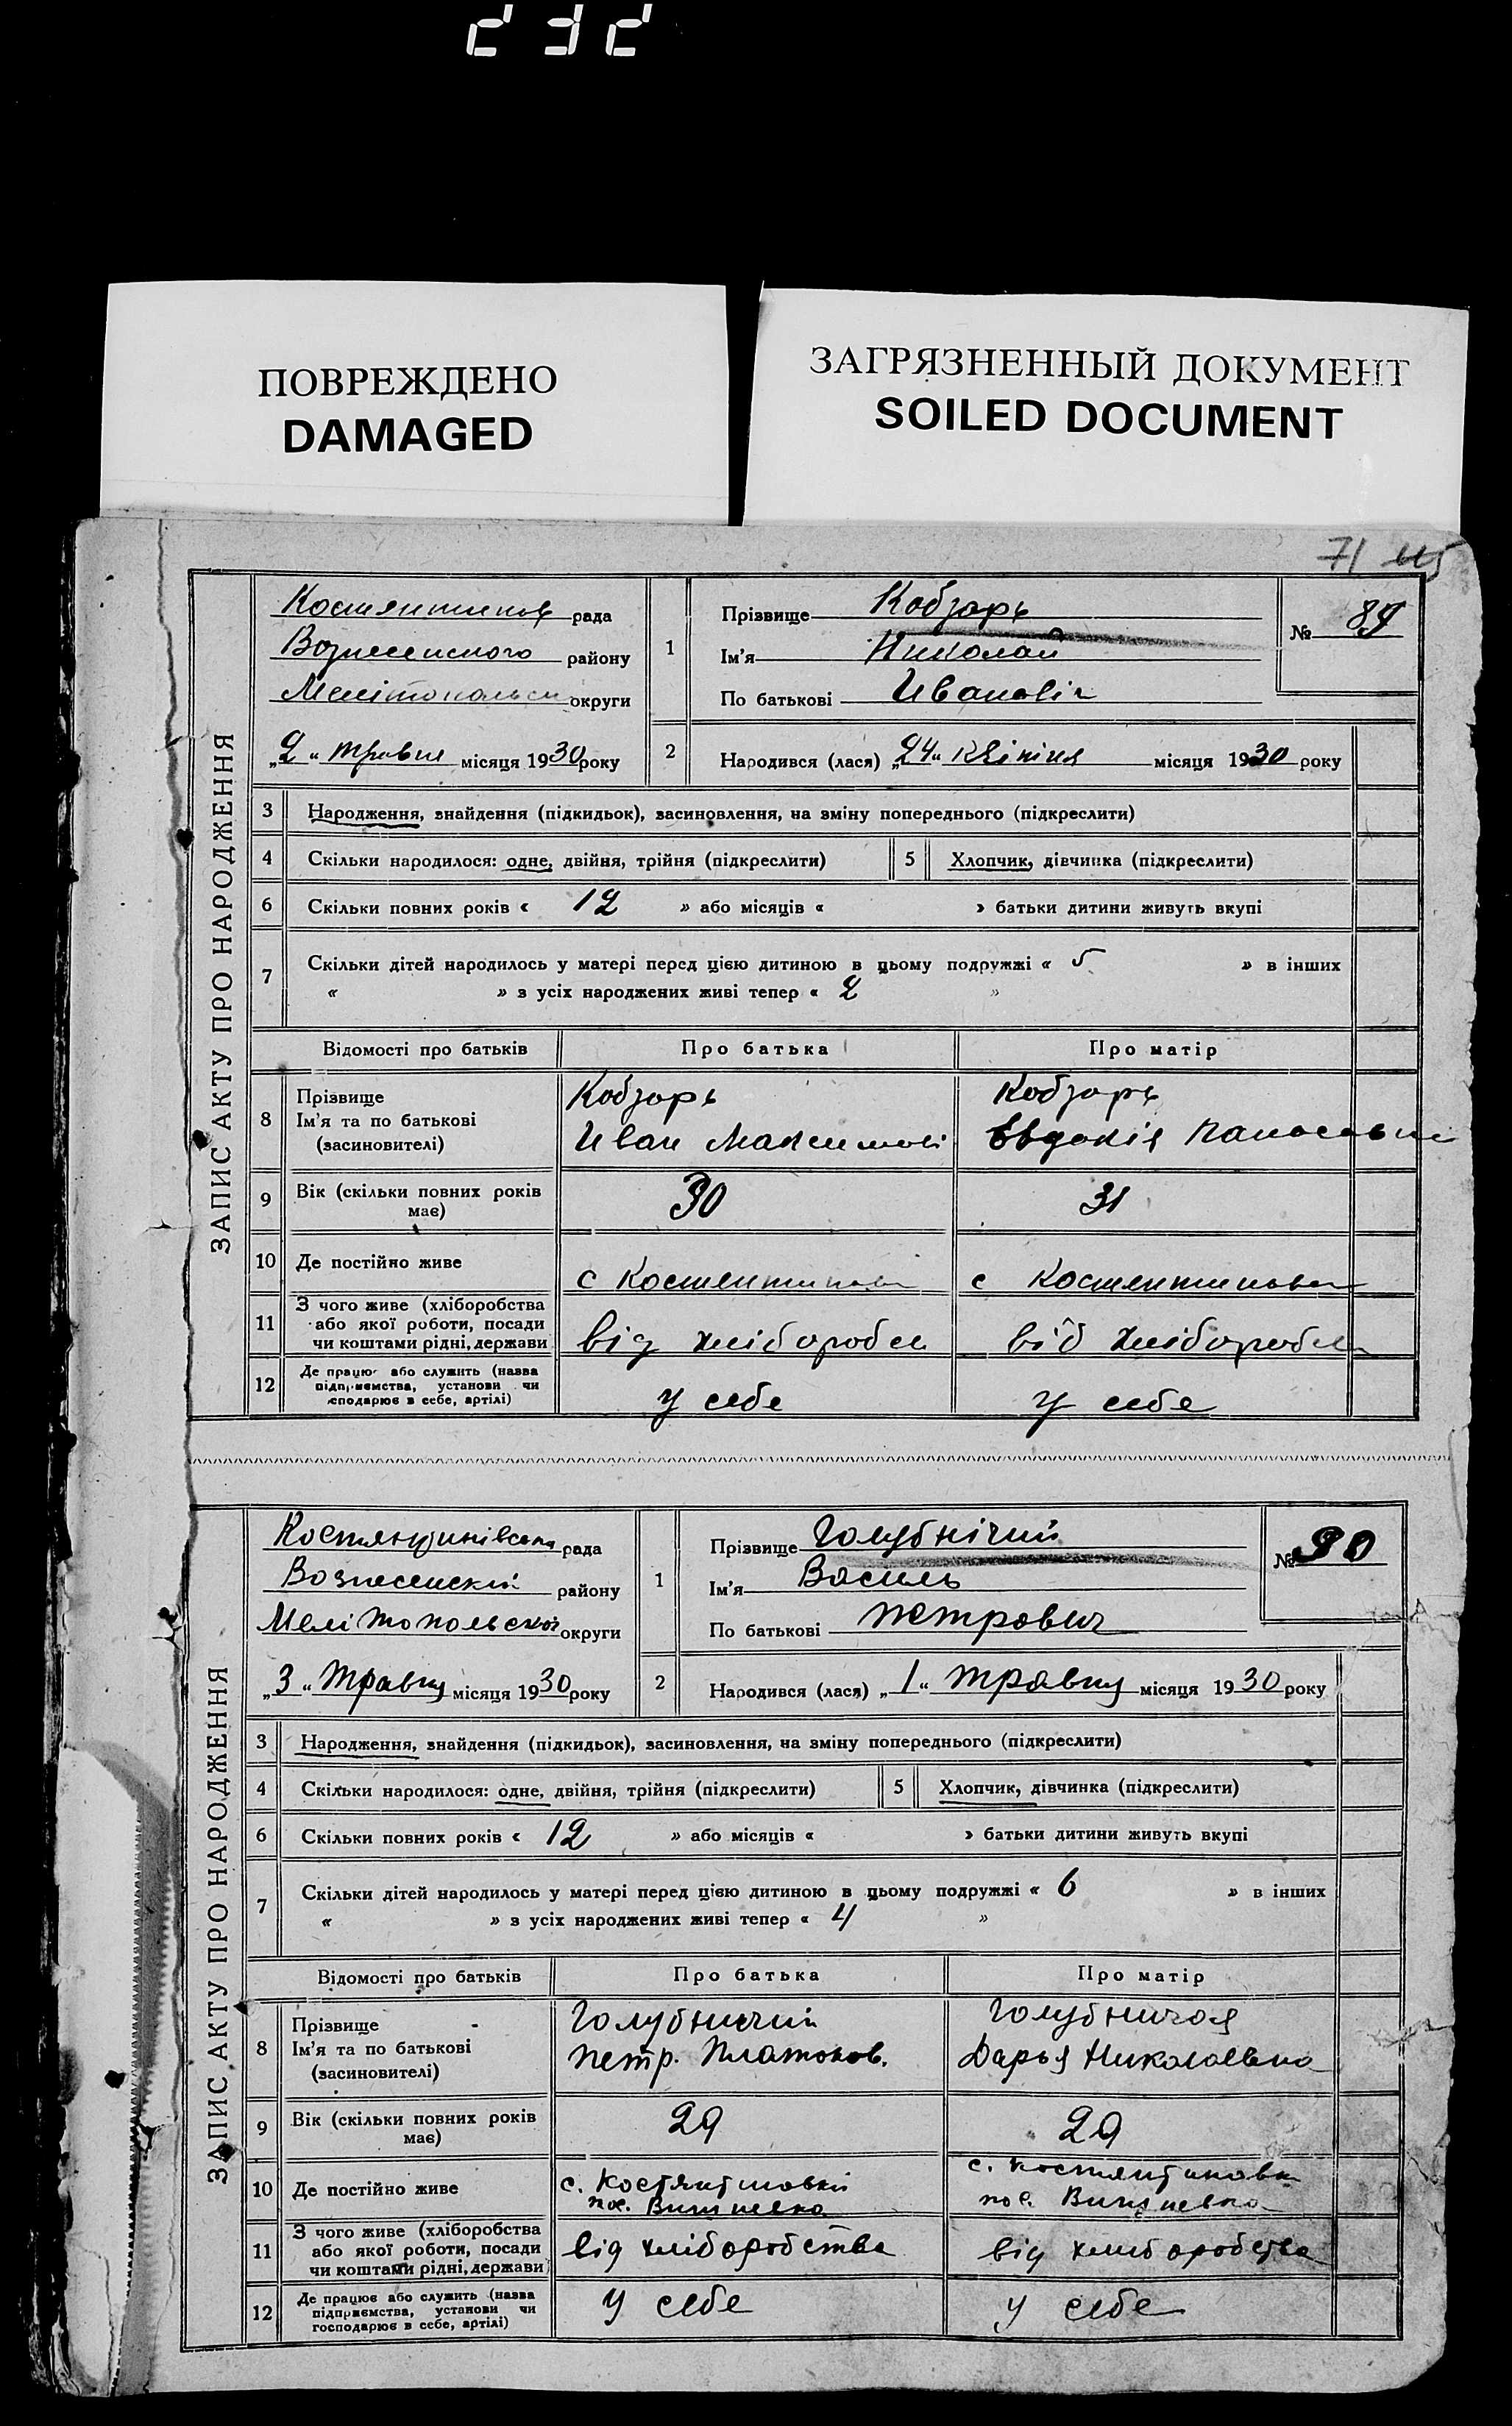 232
ПОВРЕЖДЕНО
DAMAGED
ЗАГРЯЗНЕННЫЙ ДОКУМЕНТ
SOILED DOCUMENT
71
ЗАПИС АКТУ ПРО НАРОДЖЕННЯ
Костянтинов рада
Вознесенского району
Мелітопольск округи
„2“ травня місяця 1930 року
1
Прізвище Кобзарь
Ім'я Николай
По батькові Иванович
№ 89
2
Народився (лася) „24“ квітня місяця 1930 року
3 Народження, знайдення (підкидьок), засиновлення, на зміну попереднього (підкреслити)
4 Скільки народилося: одне, двійня, трійня (підкреслити) 5 Хлопчик, дівчинка (підкреслити)
6 Скільки повних років « 12 » або місяців « » батьки дитини живуть вкупі
7 Скільки дітей народилось у матері перед цією дитиною в цьому подружжі « 5 » в інших
« » з усіх народжених живі тепер « 2 »
Відомості про батьків Про батька Про матір
8 Прізвище Кобзарь Кобзарь
Ім'я та по батькові Иван Максимові Евдокія Панасовни
(засиновителі)
9 Вік (скільки повних років має) 30 31
10 Де постійно живе с Костентинов с Костентиновка
11 З чого живе (хліборобства або якої роботи, посади чи коштами рідні, держави від хлібороб від хлібороб
12 Де працює або служить (назва підприємства, установи чи господарює в себе, артілі) у себе у себе
ЗАПИС АКТУ ПРО НАРОДЖЕННЯ
Костянтинівська рада
Вознесенский району
Мелітопольской округи
„3“ травня місяця 1930 року
1
Прізвище Голубнічий
Ім'я Василь
По батькові Петрович
№ 90
2
Народився (лася) „1“ травня місяця 1930 року
3 Народження, знайдення (підкидьок), засиновлення, на зміну попереднього (підкреслити)
4 Скільки народилося: одне, двійня, трійня (підкреслити) 5 Хлопчик, дівчинка (підкреслити)
6 Скільки повних років « 12 » або місяців « » батьки дитини живуть вкупі
7 Скільки дітей народилось у матері перед цією дитиною в цьому подружжі « 6 » в інших
« » з усіх народжених живі тепер « 4 »
Відомості про батьків Про батька Про матір
8 Прізвище Голубничий Голубничая
Ім'я та по батькові Петр. Платонов. Дарья Николаевна
(засиновителі)
9 Вік (скільки повних років має) 29 29
10 Де постійно живе с. Костянтиновки с. Костянтиновки
пос. пос.
11 З чого живе (хліборобства або якої роботи, посади чи коштами рідні, держави) від хліборобства від хлиборобства
12 Де працює або служить (назва підприємства, установи чи господарює в себе, артілі) у себе у себе